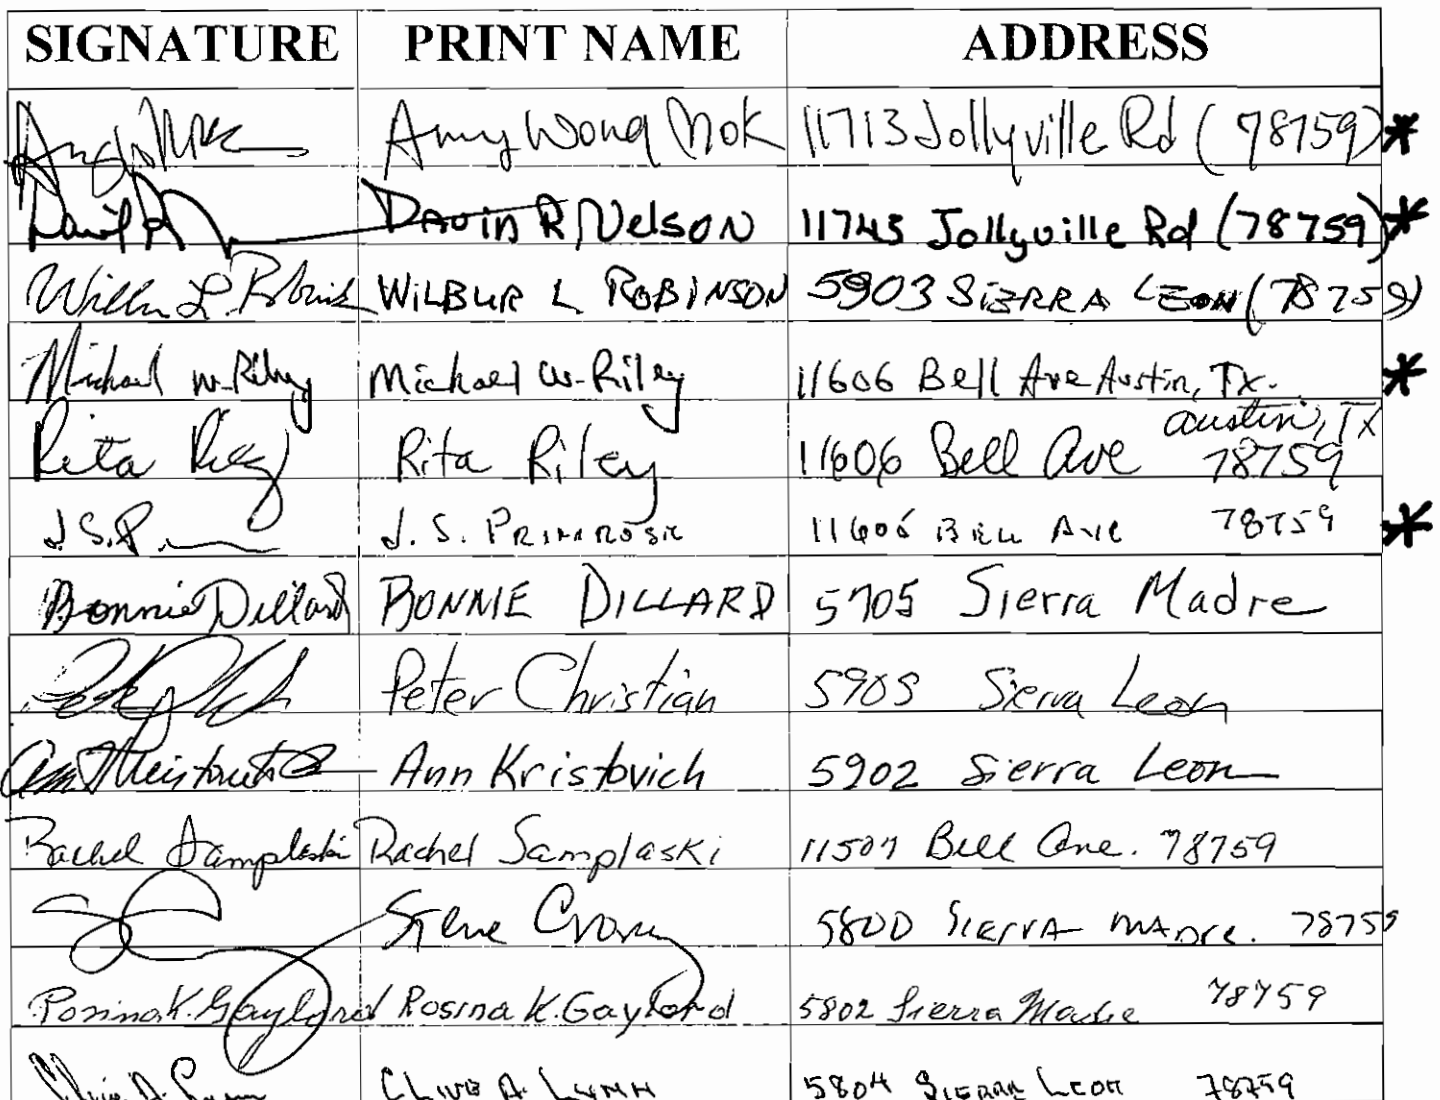 SIGNATURE PRINT NAME ADDRESS
Amy Wong Mok 11713 Jollyville Rd (78759) *
David R Nelson 11743 Jollyville Rd (78759) *
Wilbur L. Robinson WILBUR L ROBINSON 5903 SIERRA LEON (78759)
Michael W. Riley Michael W. Riley 11606 Bell Ave Austin, TX. *
Rita Riley Rita Riley 11606 Bell Ave Austin, TX 78759
J.S. J. S. PRIMROSE 11606 BELL AVE 78759 *
Bonnie Dillard BONNIE DILLARD 5705 Sierra Madre
Peter Christian 5905 Sierra Leon
Ann Kristovich Ann Kristovich 5902 Sierra Leon
Rachel Samplaski Rachel Samplaski 11507 Bell Ave. 78759
Steve 5800 Sierra Madre. 78759
Rosina K. Gaylord Rosina K. Gaylord 5802 Sierra Madre 78759
Clive A. Lynn CLIVE A. LYNN 5804 SIERRA LEON 78759